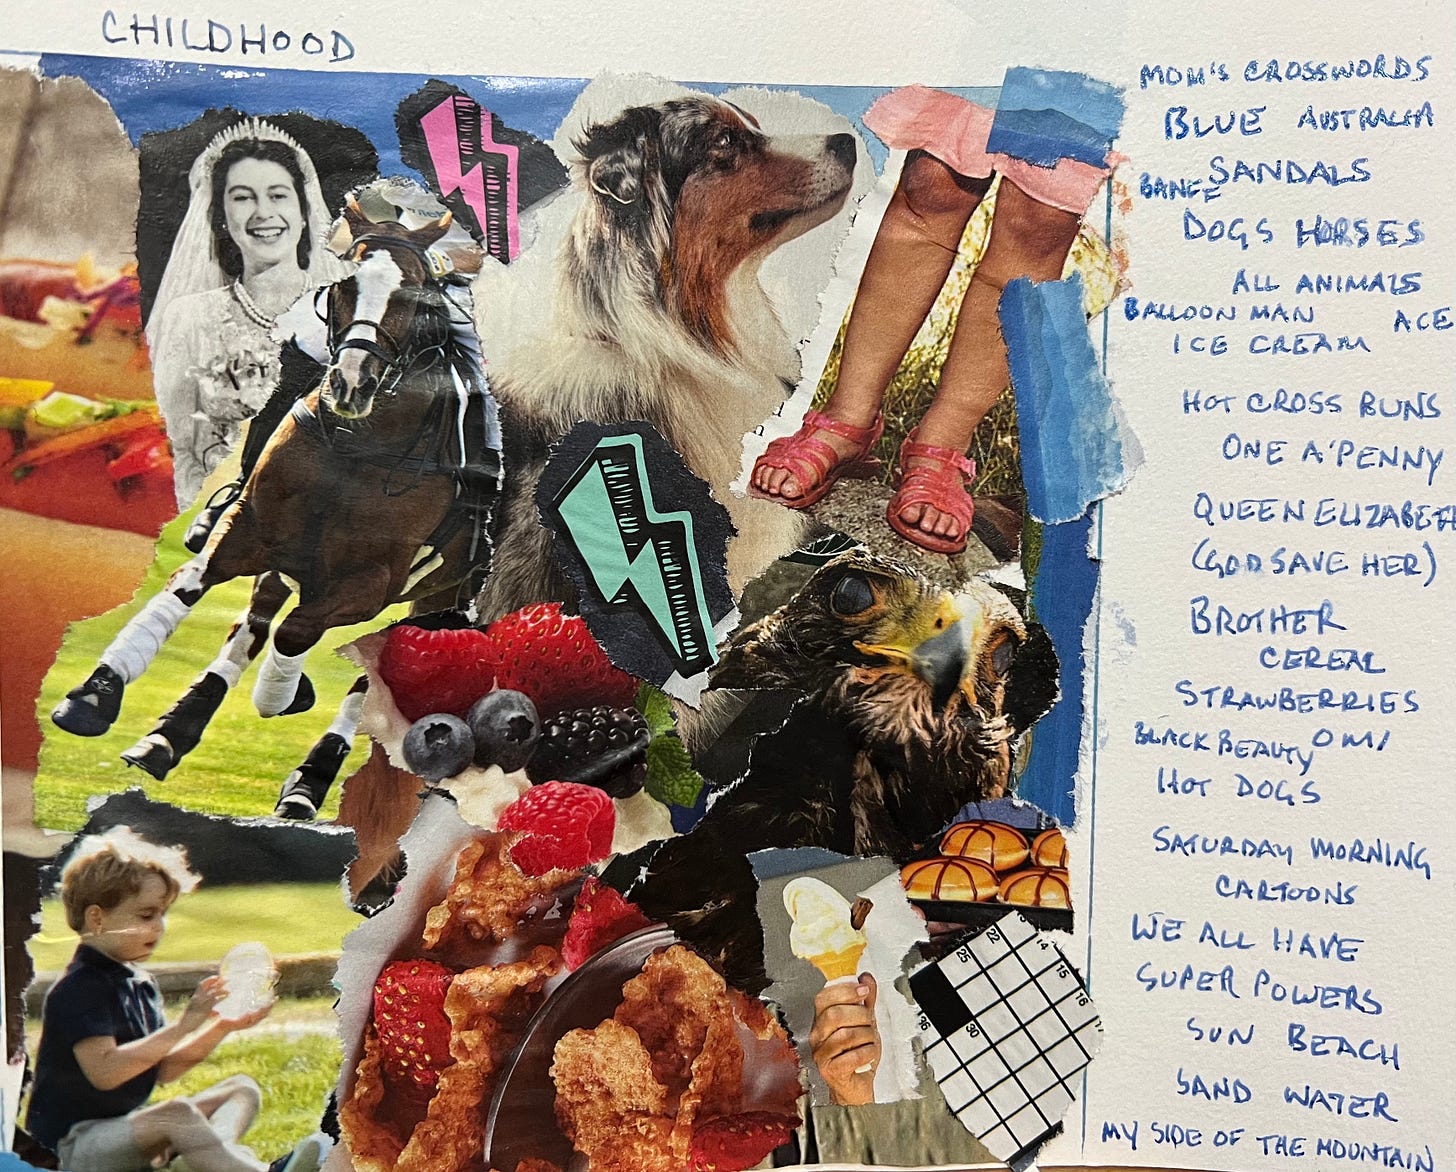 CHILDHOOD
MOM'S CROSSWORDS
BLUE AUSTRALIA
SANDALS
DOGS HORSES
ALL ANIMALS
BALLOON MAN ACE
ICE CREAM
HOT CROSS BUNS
ONE A'PENNY
QUEEN ELIZABETH
(GOD SAVE HER)
BROTHER
CEREAL
STRAWBERRIES
BLACK BEAUTY OMI
HOT DOGS
SATURDAY MORNING
CARTOONS
WE ALL HAVE
SUPER POWERS
SUN BEACH
SAND WATER
MY SIDE OF THE MOUNTAIN
22
25
14
15
16
30
36